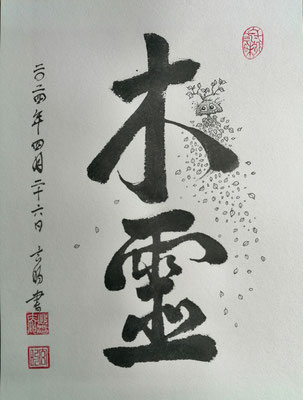 木靈
二〇二四年四月二十六日 書